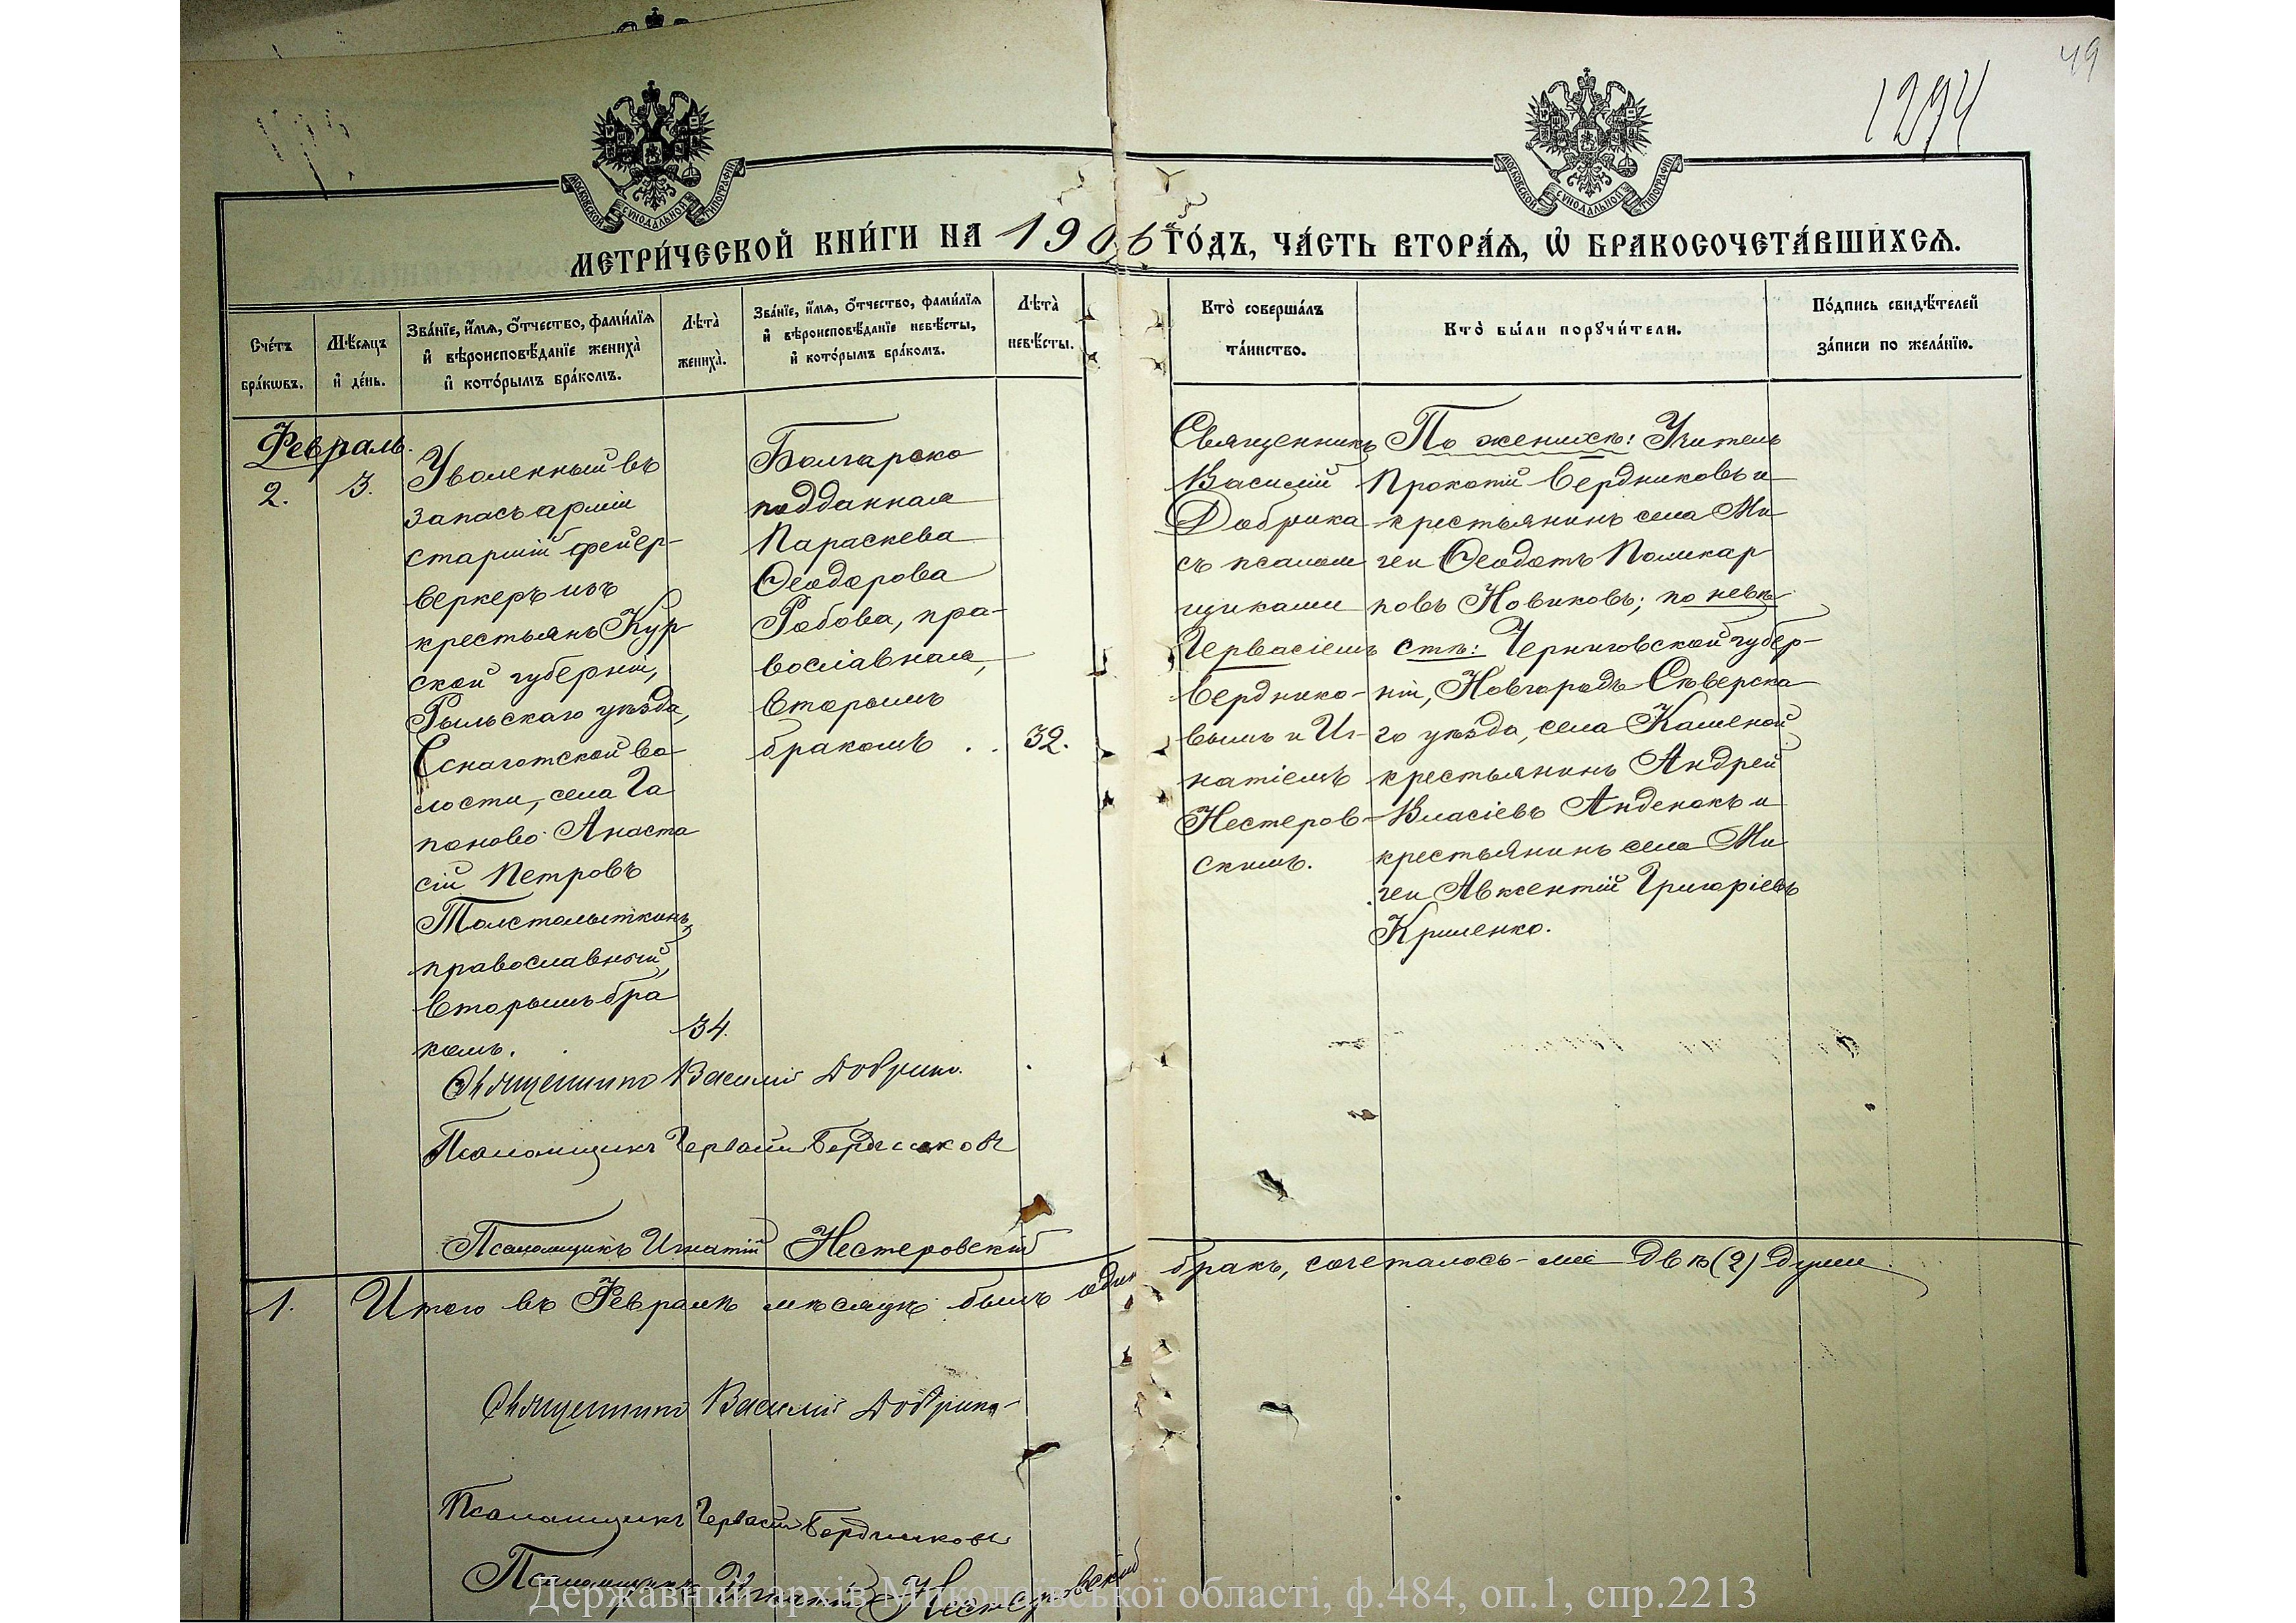 49
1294
МОСКОВСКОЙ СѴНОДАЛЬНОЙ ТИПОГРАФІИ
МОСКОВСКОЙ СѴНОДАЛЬНОЙ ТИПОГРАФІИ
МЕТРИ́ЧЕСКОЙ КНИ́ГИ НА 1906 ГО́ДЪ, ЧА́СТЬ ВТОРА́Я, Ѡ҆ БРАКОСОЧЕТА́ВШИХСЯ.
Сче́тъ бра́кѡвъ.
Мѣ́сяцъ и҆ де́нь.
Зва́нїе, и҆́мя, ѻ҆́тчество, фами́лїя и҆ вѣроисповѣ́данїе жениха̀ и҆ кото́рымъ бра́комъ.
Лѣ́та̀ жениха̀.
Зва́нїе, и҆́мя, ѻ҆́тчество, фами́лїя и҆ вѣроисповѣ́данїе невѣ́сты, и҆ кото́рымъ бра́комъ.
Лѣ́та̀ невѣ́сты.
Кто̀ соверша́лъ та́инство.
Кто̀ бы́ли порꙋчи́тели.
По́дпись свидѣ́телей за́писи по жела́нїю.
Февраль.
2.
3.
Уволенный въ
запасъ арміи
старшій фейер-
веркеръ изъ
крестьянъ Кур
ской губерніи,
Рыльскаго уѣзда,
Снаготской во
лости, села Га
поново Анаста
сій Петровъ
Толстолыткинъ,
православный,
вторымъ бра
комъ.
34.
Болгарско
подданная
Параскева
Ѳеодорова
Робова, пра-
вославная,
вторымъ
бракомъ . .
32.
Священникъ
Василій
Добрика
съ псалом
щиками
Гервасіемъ
Бердняко-
вымъ и Иг-
натіемъ
Нестеров-
скимъ.
По женихѣ: Учитель
Прокопій Бердниковъ и
крестьянинъ села Ми
геи Ѳеодотъ Поликар
повъ Новиковъ; по невѣ
стѣ: Черниговской губер-
ніи, Новгородъ Сѣверска
го уѣзда, села Каменой
крестьянинъ Андрей
Власіевъ Анденокъ и
крестьянинъ села Ми
геи Авксентій Григоріевъ
Криленко.
Священникъ Василій Добрика.
Псаломщикъ Гервасій Бердниковъ
Псаломщикъ Игнатій Нестеровскій
1. Итого въ Февралѣ мѣсяцѣ былъ одинъ бракъ, сочеталось-же двѣ (2) души
Священникъ Василій Добрика
Псаломщикъ Гервасій Бердниковъ
Псаломщикъ Игнатій Нестеровскій
Державний архів Миколаївської області, ф.484, оп.1, спр.2213